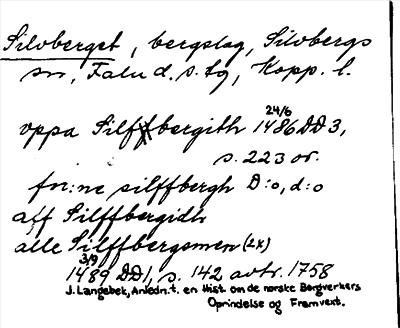 Silvberget, bergslag, Silvbergs
sn, Falu d. s. tg, Kopp. l.
vppa Silffbergith 24/6 1486 DD 3,
s. 223 or.
fn:ne silffbergh D:o, d:o
aff Silffbergidh
alle Silffbergsmen (2x)
3/9 1489 DD 1, s. 142 avtr. 1758
J. Langebek, Anledn. t. en Hist. om de norske Bergverkers
Oprindelse og Fremvext.